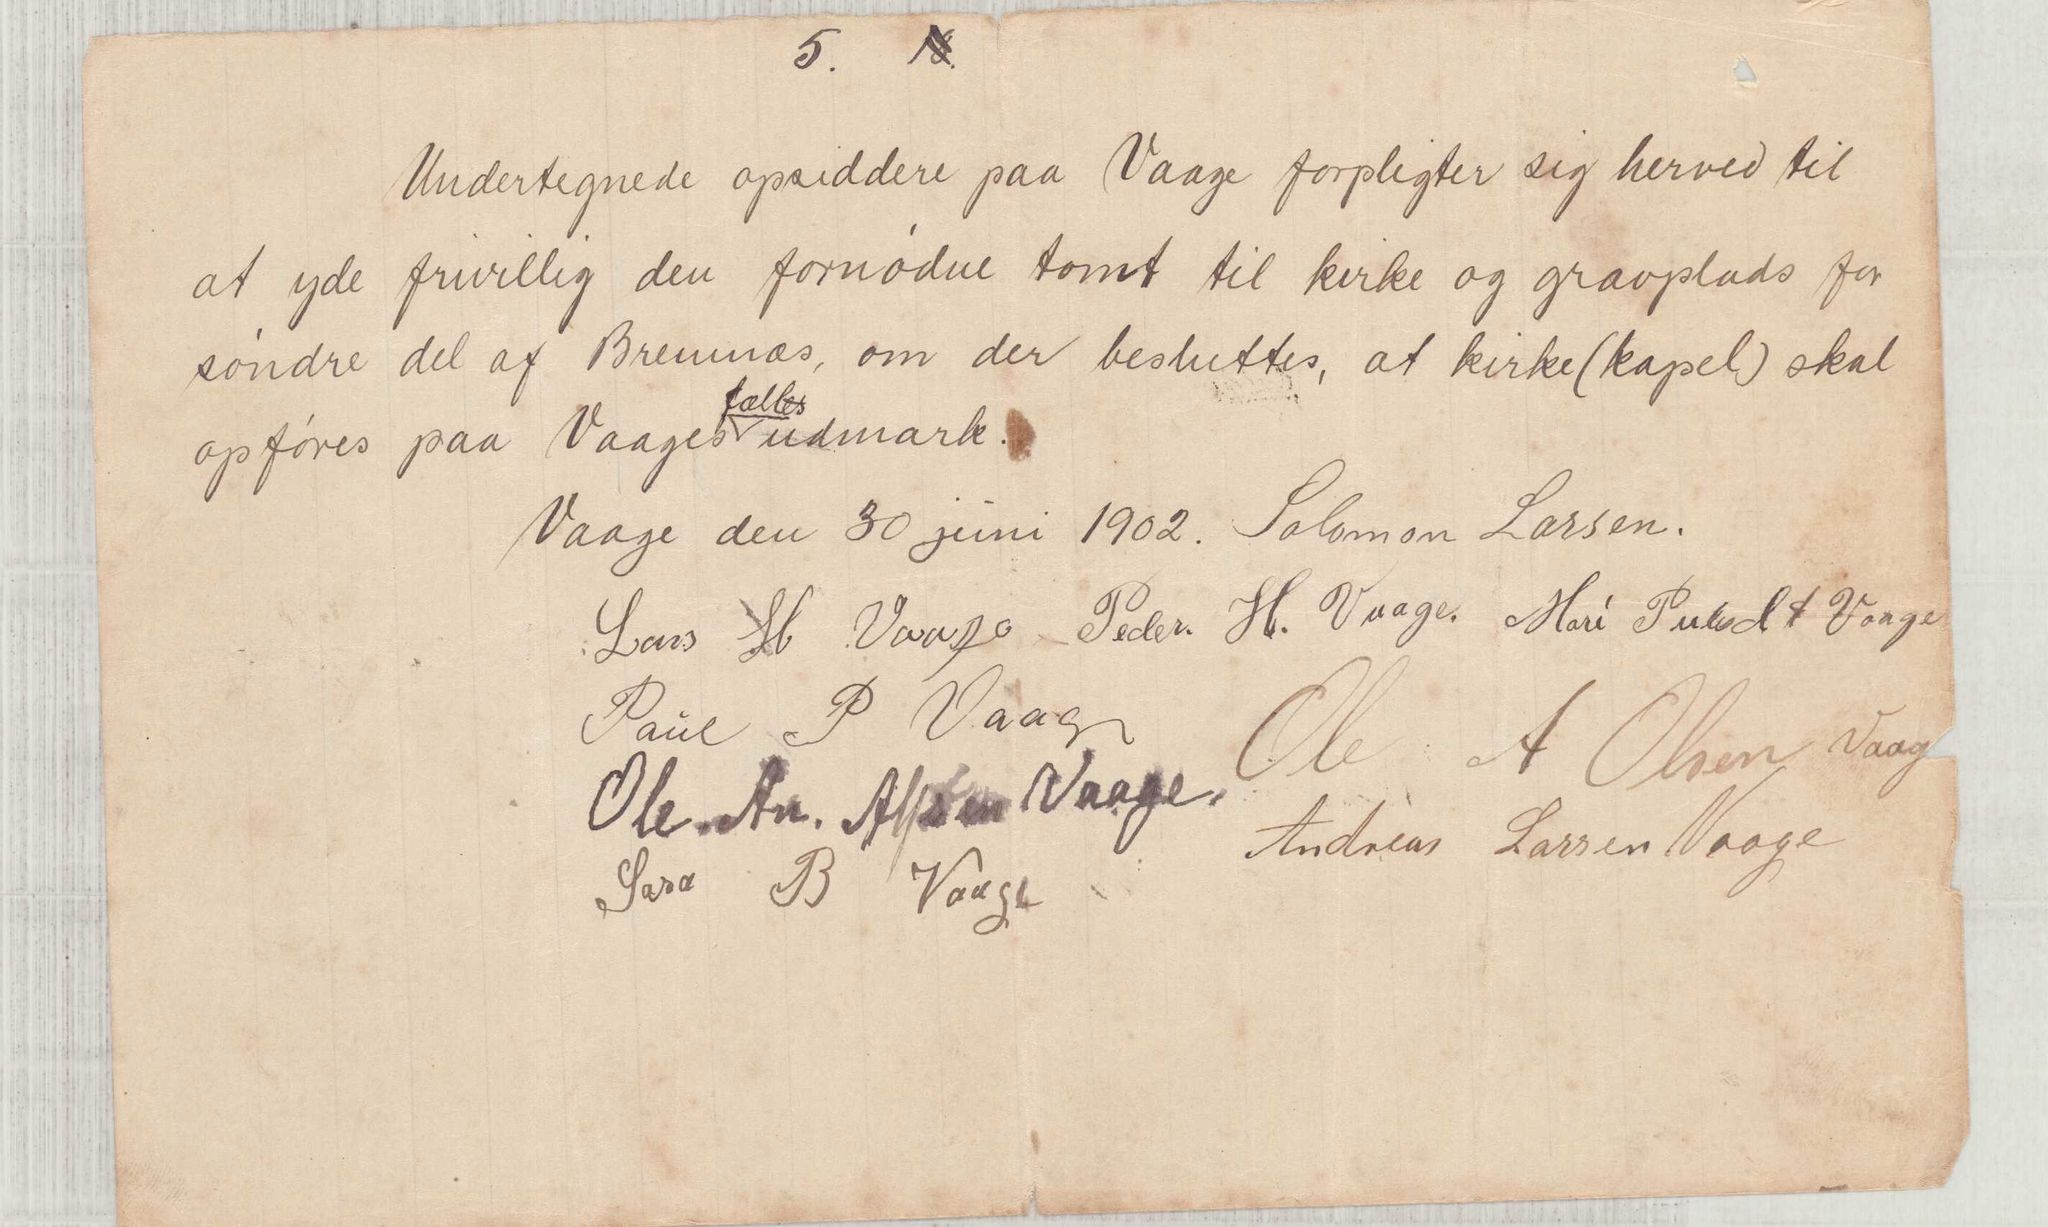 5.
Undertegnede opsiddere paa Vaage forpligter sig herved til
at yde frivillig den fornödne tomt til kirke og gravplads for
söndre del af Bremnæs, om der besluttes, at kirke (kapel) skal
fælles
opföres paa Vaages udmark.
Vaage den 30 juni 1902. Solomon Larsen.
Lars H Vaage Peder. H. Vaage. Mari Vaage
Paul P Vaag
Ole A Olsen Vaag
Ole. An. Vaage.
Andreas Larsen Vaage
Sara B Vaage